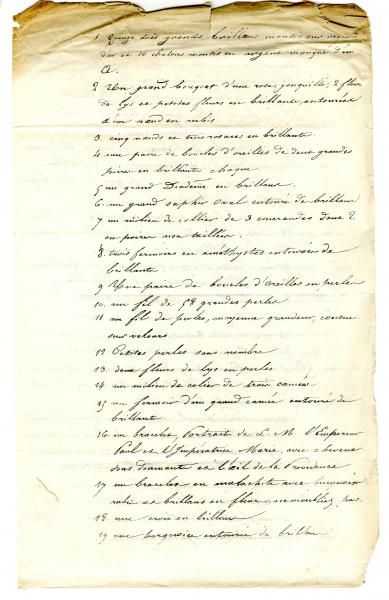 1 Quinze très grands brillans montés sur
d'or et 10 chatons montés en argent marqué d'un
A.
2 Un grand bouquet d'une rose, jonquille, 2 fleur
de lys et petites fleurs en brillants entourées
d'un nœud en rubis
3 cinq nœuds et trois rosaces en brillants
4 une paire de boucles d'oreilles de deux grandes
poires en brillants chaque
5 un grand Diadème en brillans
6 un grand saphir oval entouré de brillans
7 un milieu de collier de 3 emeraudes dont 2
en poires non taillées.
8 trois fermoirs en améthystes entourées de
brillants
9 Une paire de boucles d'oreilles en perles
10. un fil de 58 grandes perles
11 un fil de perles, moyenne grandeur, cousue
sur velours.
12 Petites perles sans nombre
13. deux fleurs de lys en perles
14 un milieu de colier de trois camées
15 un fermoir d'un grand camée entouré de
brillants.
16 un bracelet, Portraits de L. M. l'Empereur
Paul et l'Imperatrice Marie, avec cheveux
sous diamants et l'œil de la Providence
17 un bracelet en malachite avec
rubis et brillans en fleur, ne m'oubliez pas
18 une croix en brillans
19 une turquoise entourée de brillans